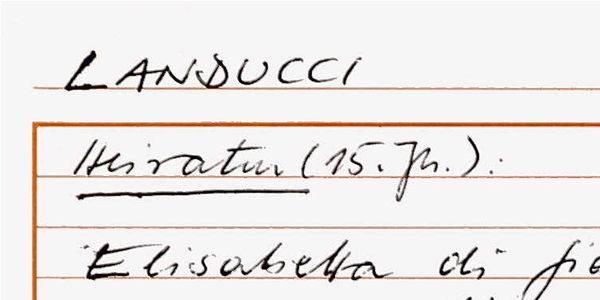 LANDUCCI
Heiraten (15. Jh.):
Elisabetta di